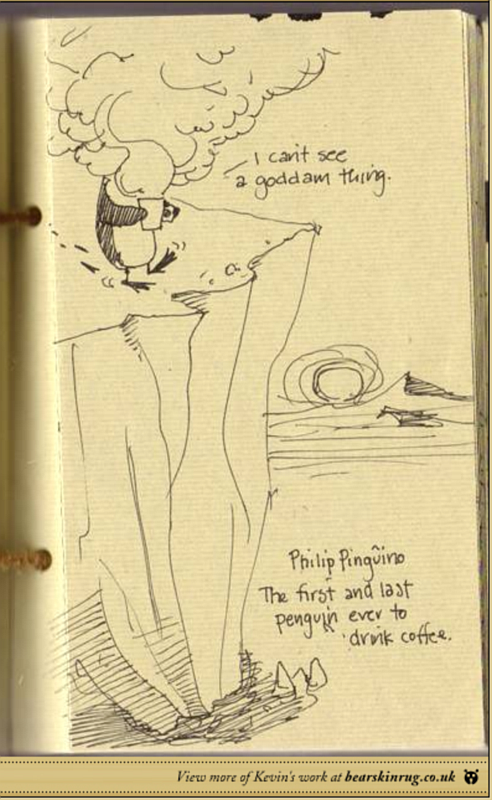 I can't see
a goddam thing.
Philip Pingüino
The first and last
penguin ever to
drink coffee.
View more of Kevin's work at bearskinrug.co.uk